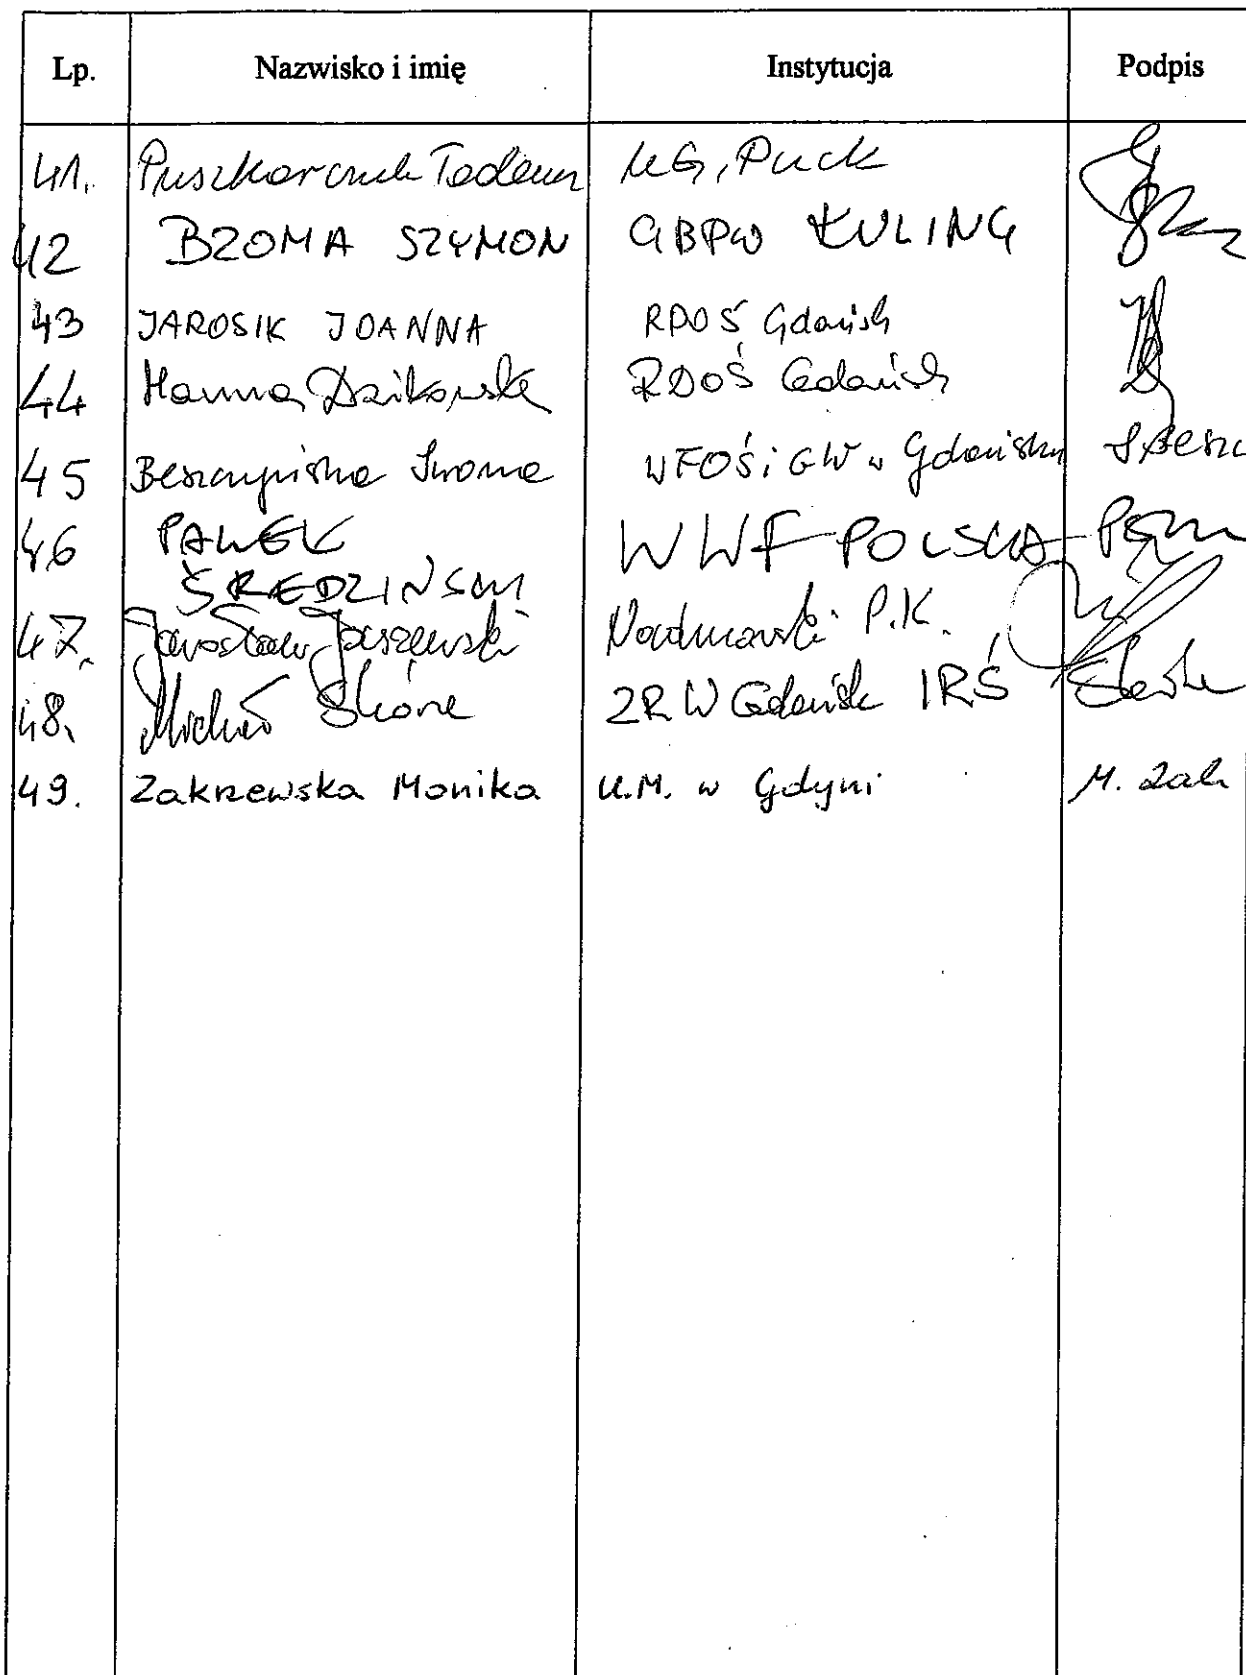 Lp. Nazwisko i imię Instytucja Podpis
41. Puszkarczuk Tadeusz UG, Puck
42 BZOMA SZYMON GBPW KULING
43 JAROSIK JOANNA RDOŚ Gdańsk
44 Hanna Dzikowska RDOŚ Gdańsk
45 Beszczyńska Iwona WFOŚiGW w Gdańsku
46 PAWEŁ WWF POLSKA
ŚREDZIŃSKI
47. Jarosław Jaszewski Nadmorski P.K.
48. Michał Skóra ZRW Gdańsk IRŚ Skóra
49. Zakrzewska Monika U.M. w Gdyni M. Zak